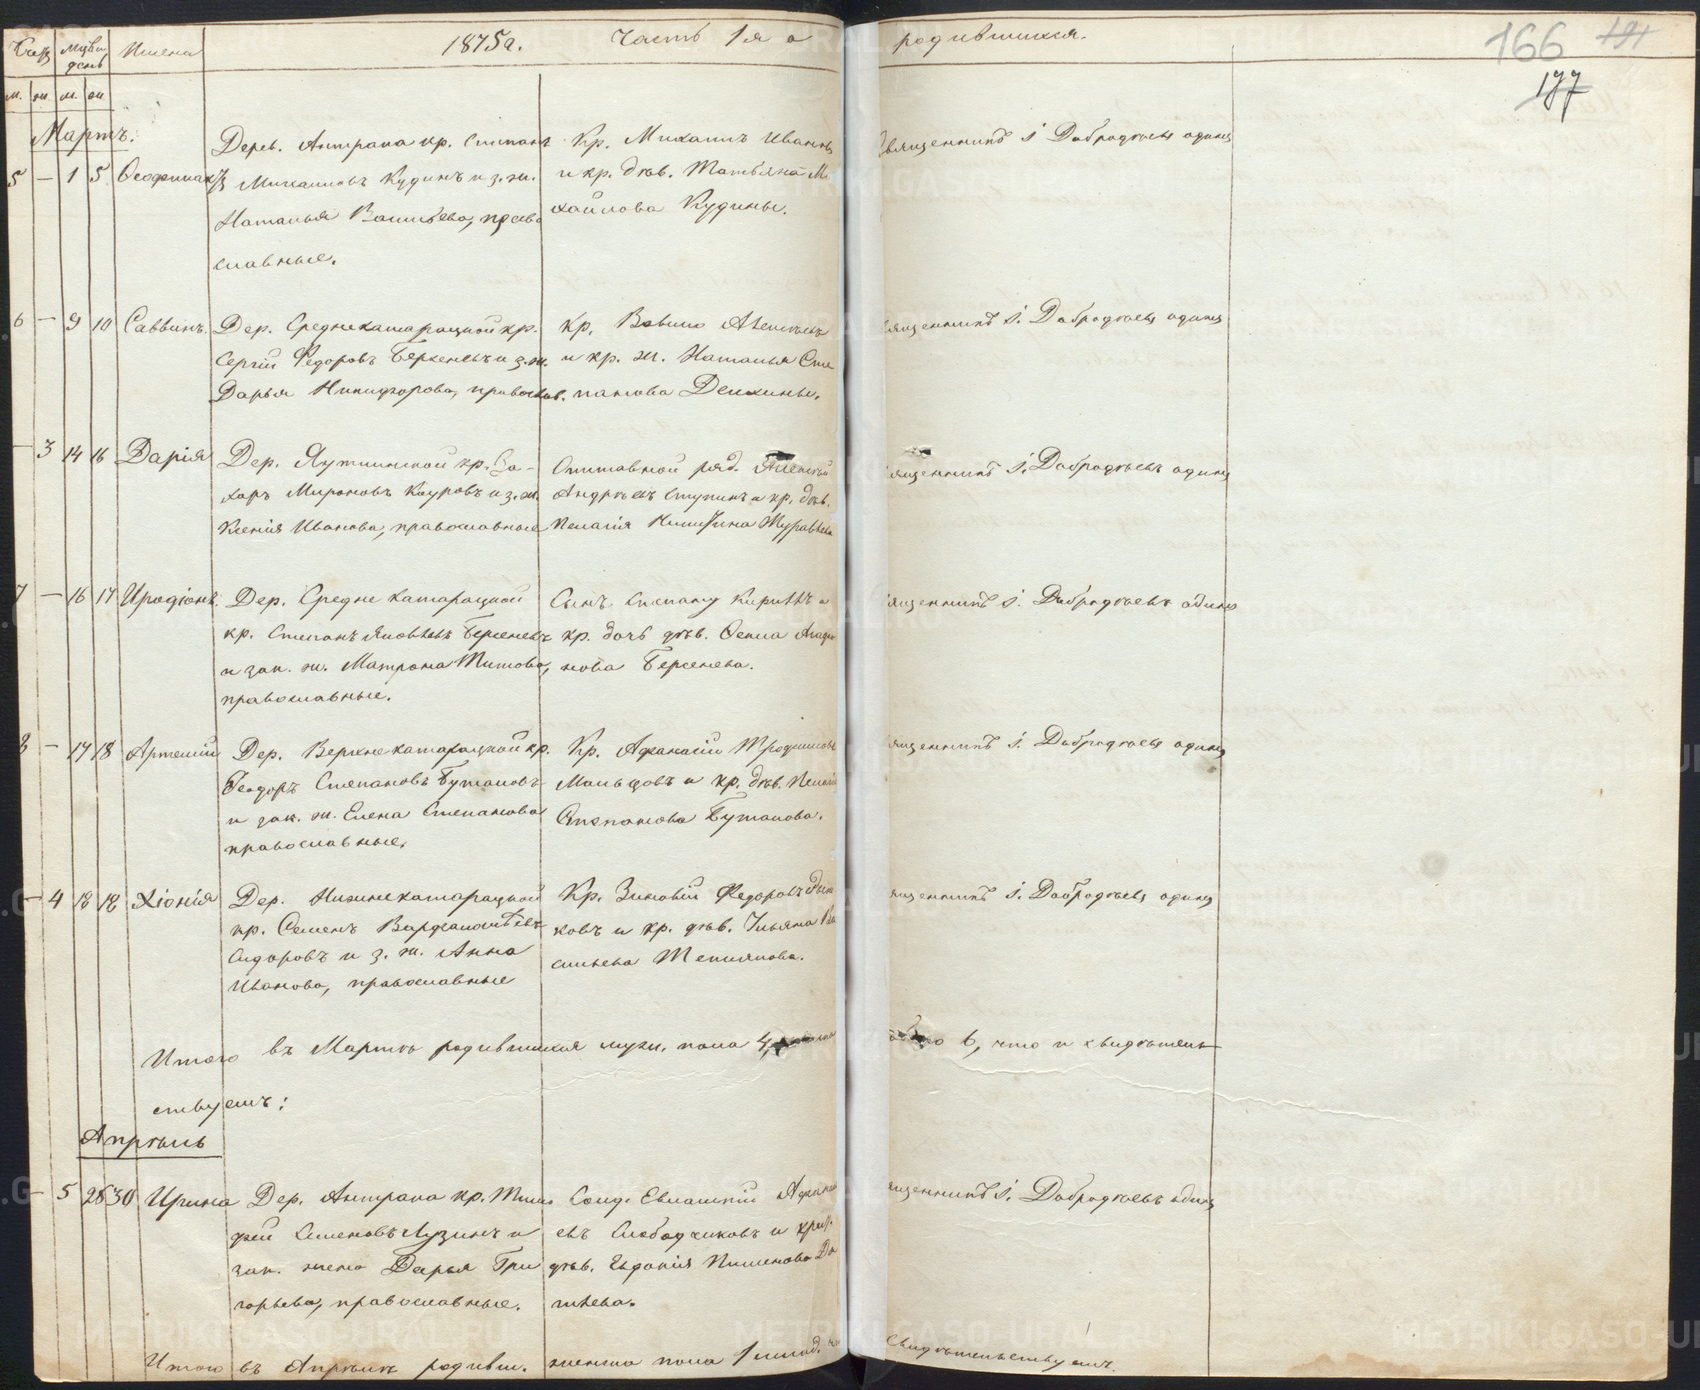 Счетъ Мѣсяцъ день Имена 1875 г. Часть 1я о родившихся. 166 191
м. ж. м. ж. 177
Мартъ.
Дерев. Антрака кр. Степанъ Кр. Михаилъ Ивановъ Священникъ І. Добродѣевъ одинъ
5 — 1 5 Михаиловъ Кудинъ и з. ж. и кр. дѣв. Татьяна Ми
Наталья Васильева, право хайлова Кудины.
славные.
6 — 9 10 Саввинъ. Дер. Среднекатарацкой кр. Кр. Священникъ І. Добродѣевъ одинъ
Сергій Федоровъ Берсеневъ и з. ж. и кр. ж. Наталья Сте
Дарья Никифорова, православ. панова
— 3 14 16 Дарія Дер. Яутлинской кр. За- Отставной ряд. Алексѣй Священникъ І. Добродѣевъ одинъ
харъ Мироновъ Кауровъ и з. ж. Андрѣевъ Ступинъ и кр. дѣв.
Ксенія Иванова, православные Пелагія Никитина Журавлева
7 — 16 17 Иродіонъ. Дер. Средне катарацкой Сынъ Священникъ І. Добродѣевъ одинъ
кр. Степанъ Яковлевъ Берсеневъ кр. дочь дѣв.
и зак. ж. Матрона Титова, нова Берсенева.
православные.
8 — 17 18 Артемій Дер. Верхнекатарацкой кр. Кр. Афанасій Трофимовъ Священникъ І. Добродѣевъ одинъ
Феодоръ Степановъ Бутаковъ Мальцовъ и кр. дѣв. Пелагія
и зак. ж. Елена Степанова Степанова Бутакова.
православные.
— 4 18 18 Хіонія Дер. Нижнекатарацкой Кр. Зиновій Федоровъ Священникъ І. Добродѣевъ одинъ
кр. Семенъ ковъ и кр. дѣв. Ульяна Ва
Сидоровъ и з. ж. Анна сильева
Иванова, православные
Итого въ Мартѣ родившихся муж. пола 4, 6, что и свидѣтель
ствуемъ:
Апрѣль
— 5 28 30 Ирина Дер. Антрака кр. Тимо Солд. Евлампій Священникъ І. Добродѣевъ одинъ
фей Семеновъ Лузинъ и евъ Слободчиковъ и крест.
зак. жена Дарья Гри дѣв. Евдокія Пименова
горьева, православные.
Итого въ Апрѣлѣ родивш. женска пола 1 свидѣтельствуемъ.